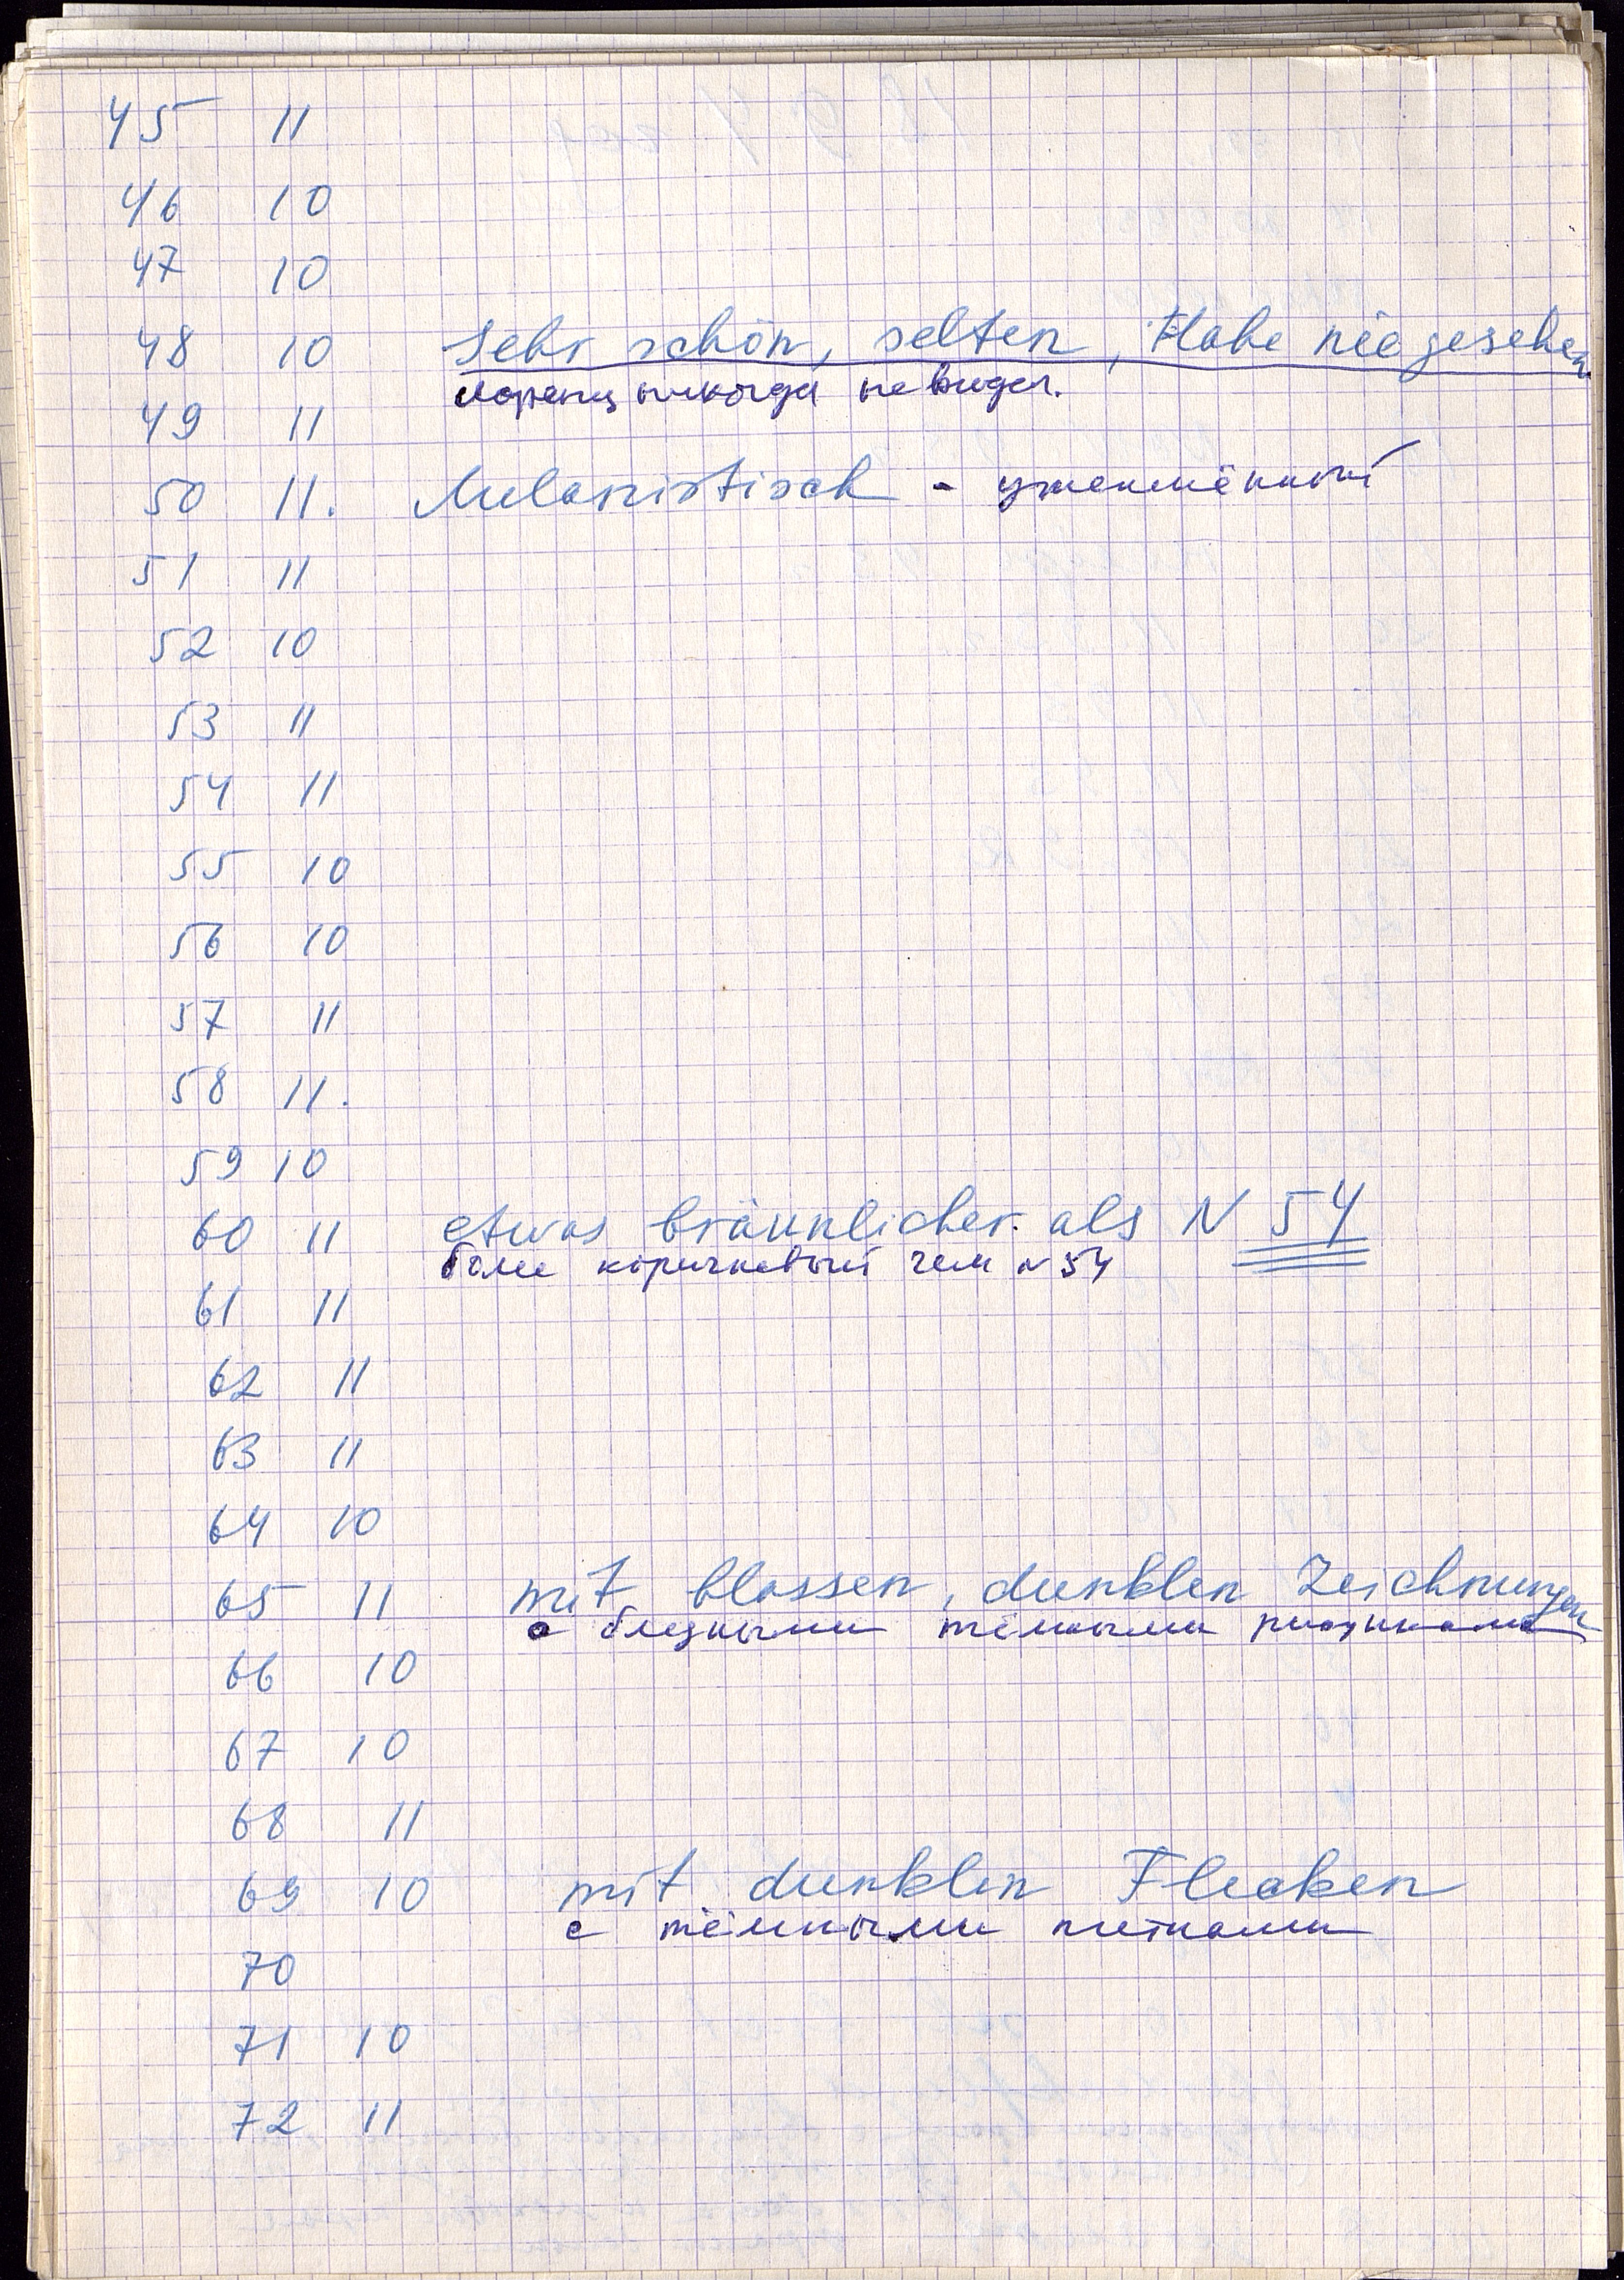 45 11
46 10
47 10
48 10 Sehr schön, selten, Habe nie gesehen
Лоренц никогда не видел.
49 11
50 11. Melanistisch - утемнённый
51 11
52 10
53 11
54 11
55 10
56 10
57 11
58 11.
59 10
60 11 etwas bräunlicher als N 54
более коричневый чем N 54
61 11
62 11
63 11
64 10
65 11 mit blassen, dunklen Zeichnungen
с бледными тёмными рисунками
66 10
67 10
68 11
69 10 mit dunklen Flecken
с тёмными пятнами
70
71 10
72 11